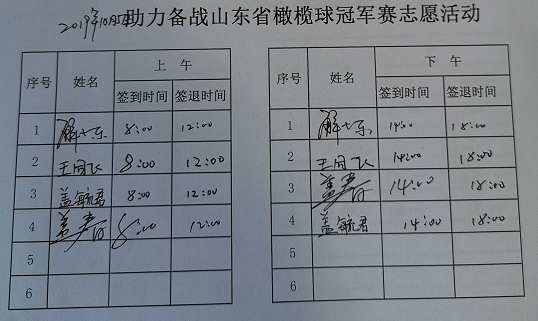 2019年10月5日助力备战山东省橄榄球冠军赛志愿活动
序号 姓名 上 午
签到时间 签退时间
1 8:00 12:00
2 王同飞 8:00 12:00
3 盖毓君 8:00 12:00
4 盖春 8:00 12:00
5
6
序号 姓名 下 午
签到时间 签退时间
1 14:00 18:00
2 王同飞 14:00 18:00
3 盖春 14:00 18:00
4 盖毓君 14:00 18:00
5
6